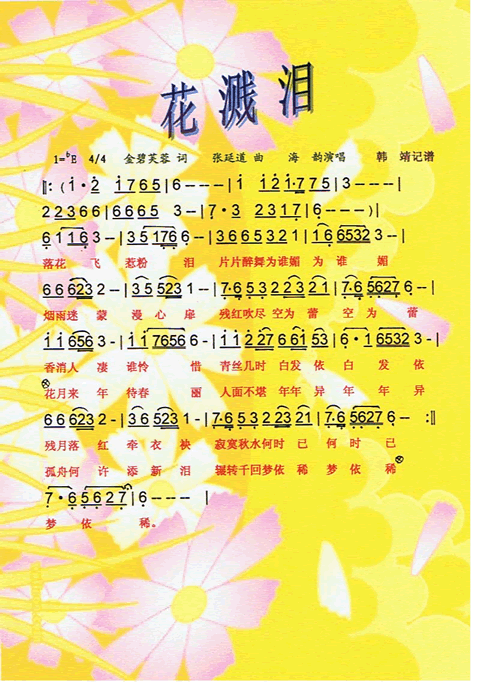 花溅泪
1=ᵇE 4/4 金碧芙蓉 词 张廷道 曲 海 韵演唱 韩 靖记谱
‖: ( i · 2 i 7 6 5 | 6 - - - | i i 2 i · 7 7 5 | 3 - - - |
2 2 3 6 6 | 6 6 6 5 3 - - | 7 · 3 2 3 1 7 | 6 - - - ) |
6 1 1 6 3 - | 3 5 1 7 6 6 - | 3 6 6 5 3 2 1 | 1 6 6 5 3 2 3 - |
落花 飞 惹粉 泪 片片醉舞为谁媚 为 谁 媚
6 6 6 2 3 2 - | 3 5 5 2 3 1 - | 7 · 6 5 3 2 2 3 2 1 | 7 · 6 5 6 2 7 6 - |
烟雨迷 蒙 漫 心 扉 残红吹尽 空为 蕾 空 为 蕾
i i 6 5 6 3 - | i i 7 6 5 6 6 - | i i 2 2 7 6 6 1 6 5 | 6 · i 6 5 3 2 3 - |
香消人 凄 谁怜 惜 青丝几时 白发 依 白 发 依
花月来 年 待春 丽 人面不堪 年年 异 年 年 异
6 6 6 2 3 2 - | 3 6 5 2 3 1 - | 7 · 6 5 3 2 2 3 2 1 | 7 · 6 5 6 2 7 6 - :‖
残月落 红 牵 衣 袂 寂寞秋水何时 已 何 时 已
孤舟何 许 添 新 泪 辗转千回梦依 稀 梦 依 稀
7 · 6 5 6 2 7 | 6 - - - |
梦 依 稀。